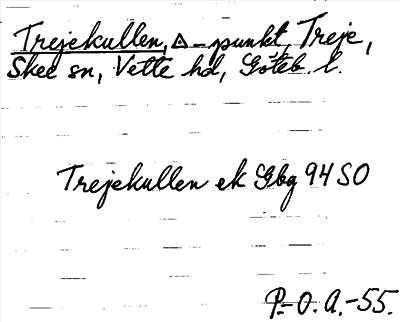 Trejekullen, △-punkt, Treje,
Skee sn, Vette hd, Göteb. l.
Trejekullen ek Gbg 94 SO
P.-O. A.-55.